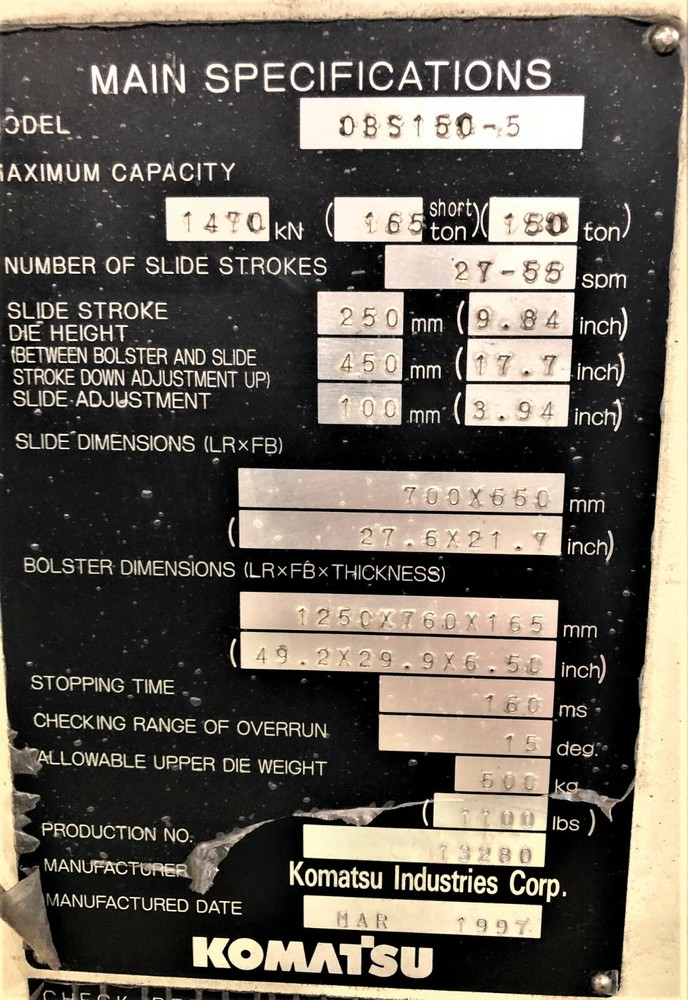 MAIN SPECIFICATIONS
ODEL OBS150-5
AXIMUM CAPACITY
1470 kN (165 short ton)(150 ton)
NUMBER OF SLIDE STROKES 27-55 spm
SLIDE STROKE 250 mm (9.84 inch)
DIE HEIGHT
(BETWEEN BOLSTER AND SLIDE 450 mm (17.7 inch)
STROKE DOWN ADJUSTMENT UP)
SLIDE ADJUSTMENT 100 mm (3.94 inch)
SLIDE DIMENSIONS (LR×FB)
700X550 mm
(27.6X21.7 inch)
BOLSTER DIMENSIONS (LR×FB×THICKNESS)
1250X760X165 mm
(49.2X29.9X6.50 inch)
STOPPING TIME 160 ms
CHECKING RANGE OF OVERRUN 15 deg.
ALLOWABLE UPPER DIE WEIGHT 500 kg
(1100 lbs)
PRODUCTION NO. 13280
MANUFACTURER Komatsu Industries Corp.
MANUFACTURED DATE MAR 1997
KOMATSU
CHECK